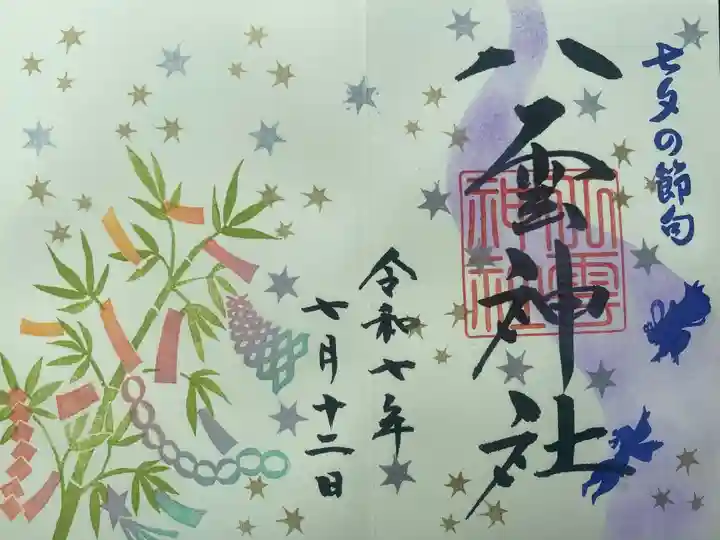 七夕の節句
八雲神社
八雲神社
令和七年
七月十二日